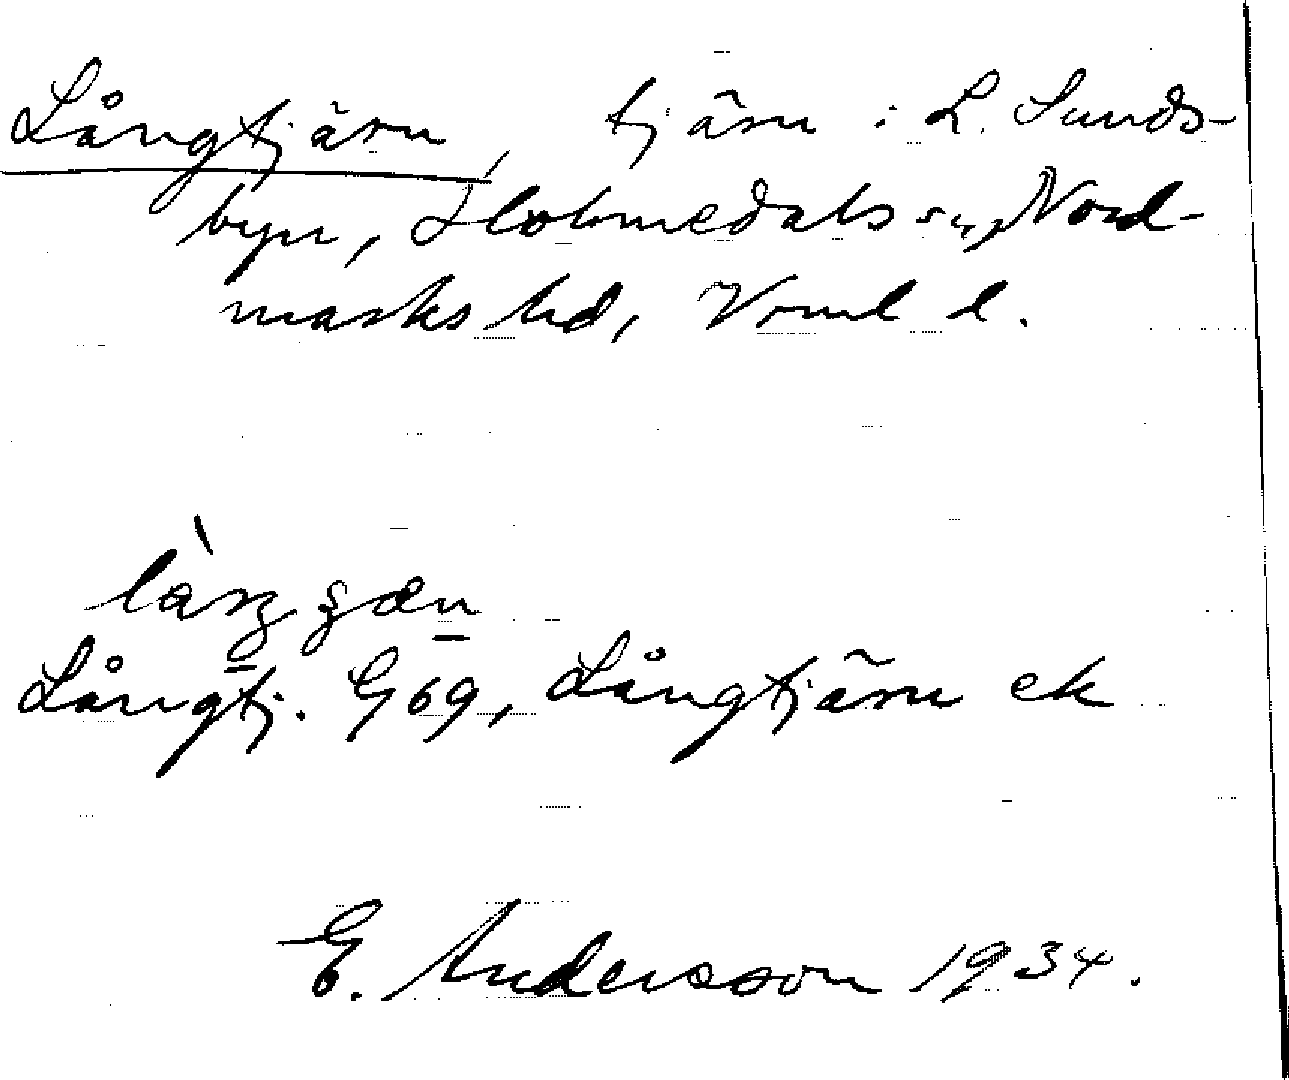 Långtjärn, tjärn i L. Sunds-
byn, Holmedals sn, Nord-
marks hd, Vrml l.
Långtj. G69, Långtjärn ek
E. Andersson 1934.